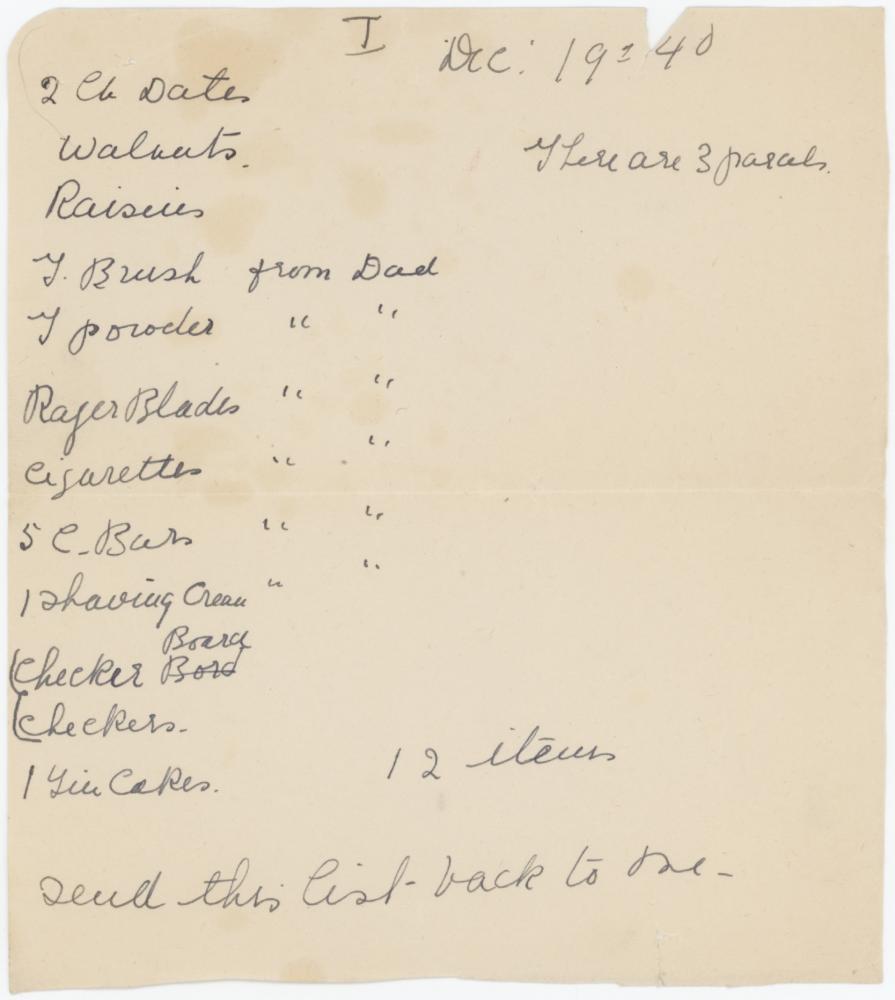 I
Dec: 19=40
2 Lb Dates
Walnuts.
There are 3 parcels.
Raisins
T. Brush from Dad
T powder " "
Razer Blades " "
Cigarettes " "
5 C. Bars " "
1 Shaving Cream " "
Board
(Checker Bord
(Checkers.
12 items
1 Tin Cakes.
send this list back to me -